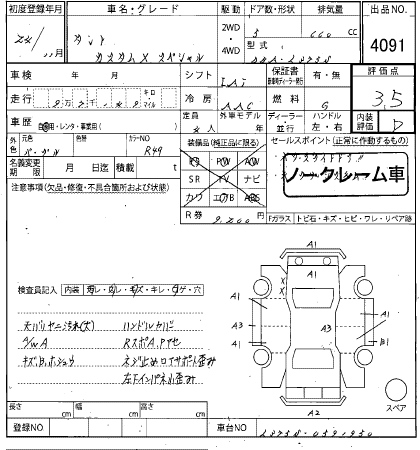 初度登録年月 車名・グレード 駆動 ドア数・形状 排気量 出品NO.
24/ 11月 タント 2WD・4WD 5 660 cc 4091
カスタムX スペシャル 型式
車検 年 月 シフト IAT 保証書 新車時ディーラー発行 有・無 評価点
走行 キロ マイル 冷房 AAC 燃料 G 3.5
車歴 自家用・レンタ・事業用( ) 定員 人 外車モデル 年 ディーラー・並行 ハンドル 左・右 内装評価 D
外色 元色 パール 色替 カラーNO R49 装備品(純正品に限る) セールスポイント(正常に作動するもの)
名義変更期限 月 日 積載 t PS PW AW
注意事項(欠品・修復・不具合箇所および状態) SR TV ナビ ノークレーム車
カワ エアB ABS
R券 9,200 円 Fガラス トビ石・キズ・ヒビ・ワレ・リペア跡
A1
A1
検査員記入 内装 ヨレ・ワレ・キズ・キレ・コゲ・穴
A1 A1
天バリヤニ汚れ(大) ハンドルカバー
A3 A3
A/W A RスポA.Pヤセ
A1 B1
キズ.B.ホシュウ ネジ止めロアサポート歪み
左下インパネル歪み
A2 スペア
長さ cm 幅 cm 高さ cm
登録NO 車台NO L375S-0591950